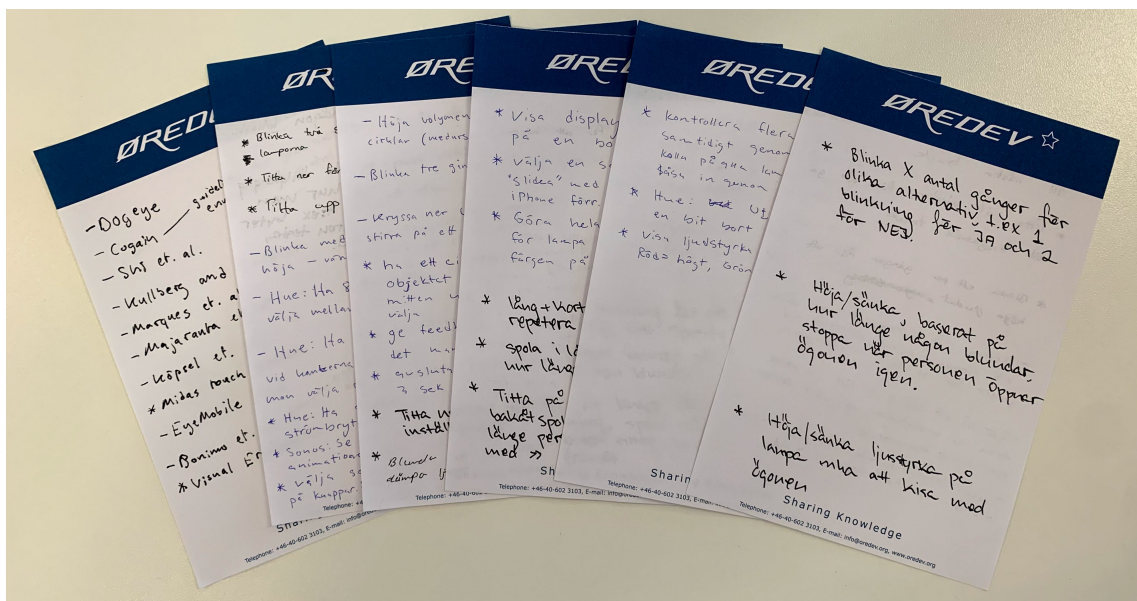 ØREDEV
- Dogeye
- Cogain
- Shi et. al.
- Kullberg and
- Marques et. a
- Majaranta et
- Köpsel et.
* Midas touch
- EyeMobile
- Bonino et.
* Visual Er
Telephone: +46-40-602 3103, E-mail: info@oredev
ØR
* Blinka två
* lamporna
* Titta ner för
* Titta upp
- Blinka med
höja - vän
- Hue: Ha 8
välja mellan
- Hue: Ha
vid kanterna
man välja
* Hue: Ha
strömbryt
* Sonos: Se
animationer
* välja
på knappar
Telephone: +46-40
ØRE
- Höja volymen
cirklar (medurs
- Blinka tre gån
- Kryssa ner
stirra på ett
* ha ett ci
objektet
mitten
välja
* ge feedb
det
* avsluta
3 sek
* Titta
install
* Blunda
dämpa lj
Telephone: +46-40-602 3103
ØREI
* Visa display
på en bo
* välja en s
"slidea" med
iPhone förr.
* Göra hela
för lampa
färgen på
* lång + kort
repetera
* spola i lå
hur länge
* Titta på
bakåtspol
länge per
med >>
Sh
Telephone: +46-40-602 3103, E-mail: info@oredev
ØREDE
* kontrollera flera
samtidigt genom
kolla på alla lam
låsa in genom
* Hue:
en bit bort
* visa ljudstyrka
Röd = högt, Grön
Sharin
Telephone: +46-40-602 3103, E-mail: info@ore
ØREDEV
* Blinka X antal gånger för
olika alternativ, t.ex 1
blinkning för JA och 2
för NEJ.
* Höja/sänka, baserat på
hur länge någon blundar,
stoppa när personen öppnar
ögonen igen.
* Höja/sänka ljusstyrka på
lampa mha att kisa med
ögonen
Sharing Knowledge
Telephone: +46-40-602 3103, E-mail: info@oredev.org, www.oredev.org